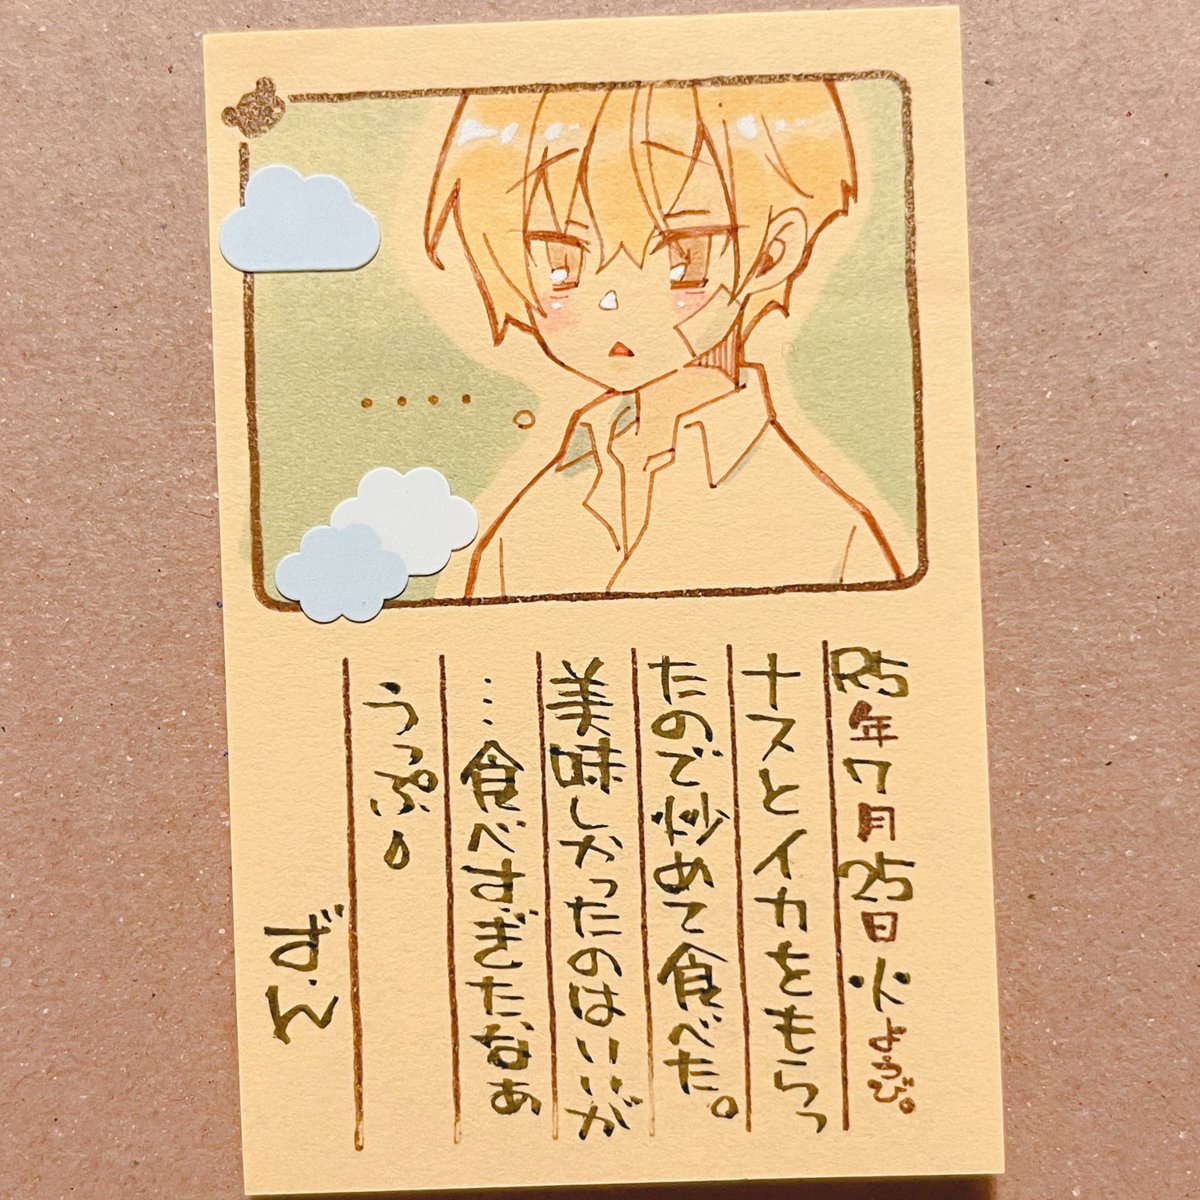 R5年7月25日火ようび。
ナスとイカをもらっ
たので炒めて食べた。
美味しかったのはいいが
…食べすぎたなぁ
うっぷ。
ずん